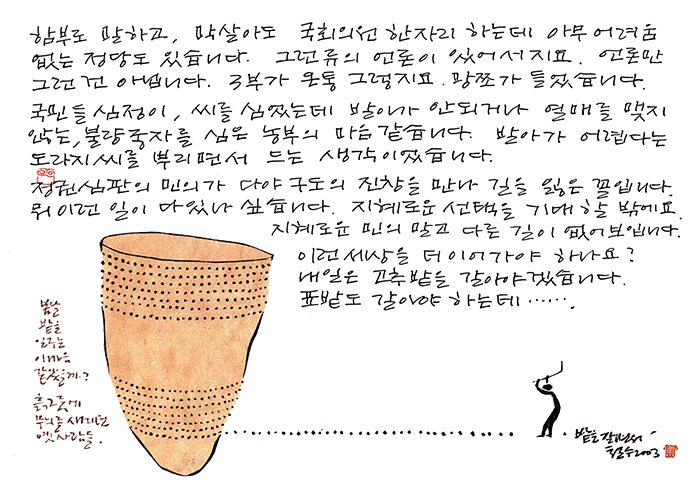 함부로 말하고, 막살아도 국회의원 한자리 하는데 아무 어려움
없는 정당도 있습니다. 그런류의 언론이 있어서지요. 언론만
그런 건 아닙니다. 3부가 온통 그렇지요. 광쪼가 들었습니다.
국민들 심정이, 씨를 심었는데 발아가 안되거나 열매를 맺지
않는, 불량종자를 심은 농부의 마음 같습니다. 발아가 어렵다는
도라지씨를 뿌리면서 드는 생각이었습니다.
정권심판의 민의가 다야구도의 진창을 만나 길을 잃은 꼴입니다.
뭐 이런 일이 다 있나 싶습니다. 지혜로운 선택을 기대할 밖에요.
지혜로운 민의 말고 다른 길이 없어보입니다.
이런세상을 더 이어가야 하나요?
내일은 고추밭을 갈아야겠습니다.
표밭도 갈아야 하는데…….
봄날
밭을
일구는
이 마음
같았을까?
흙그릇에
무늬를 새기던
옛사람들.
밭을 갈면서
철수 2003